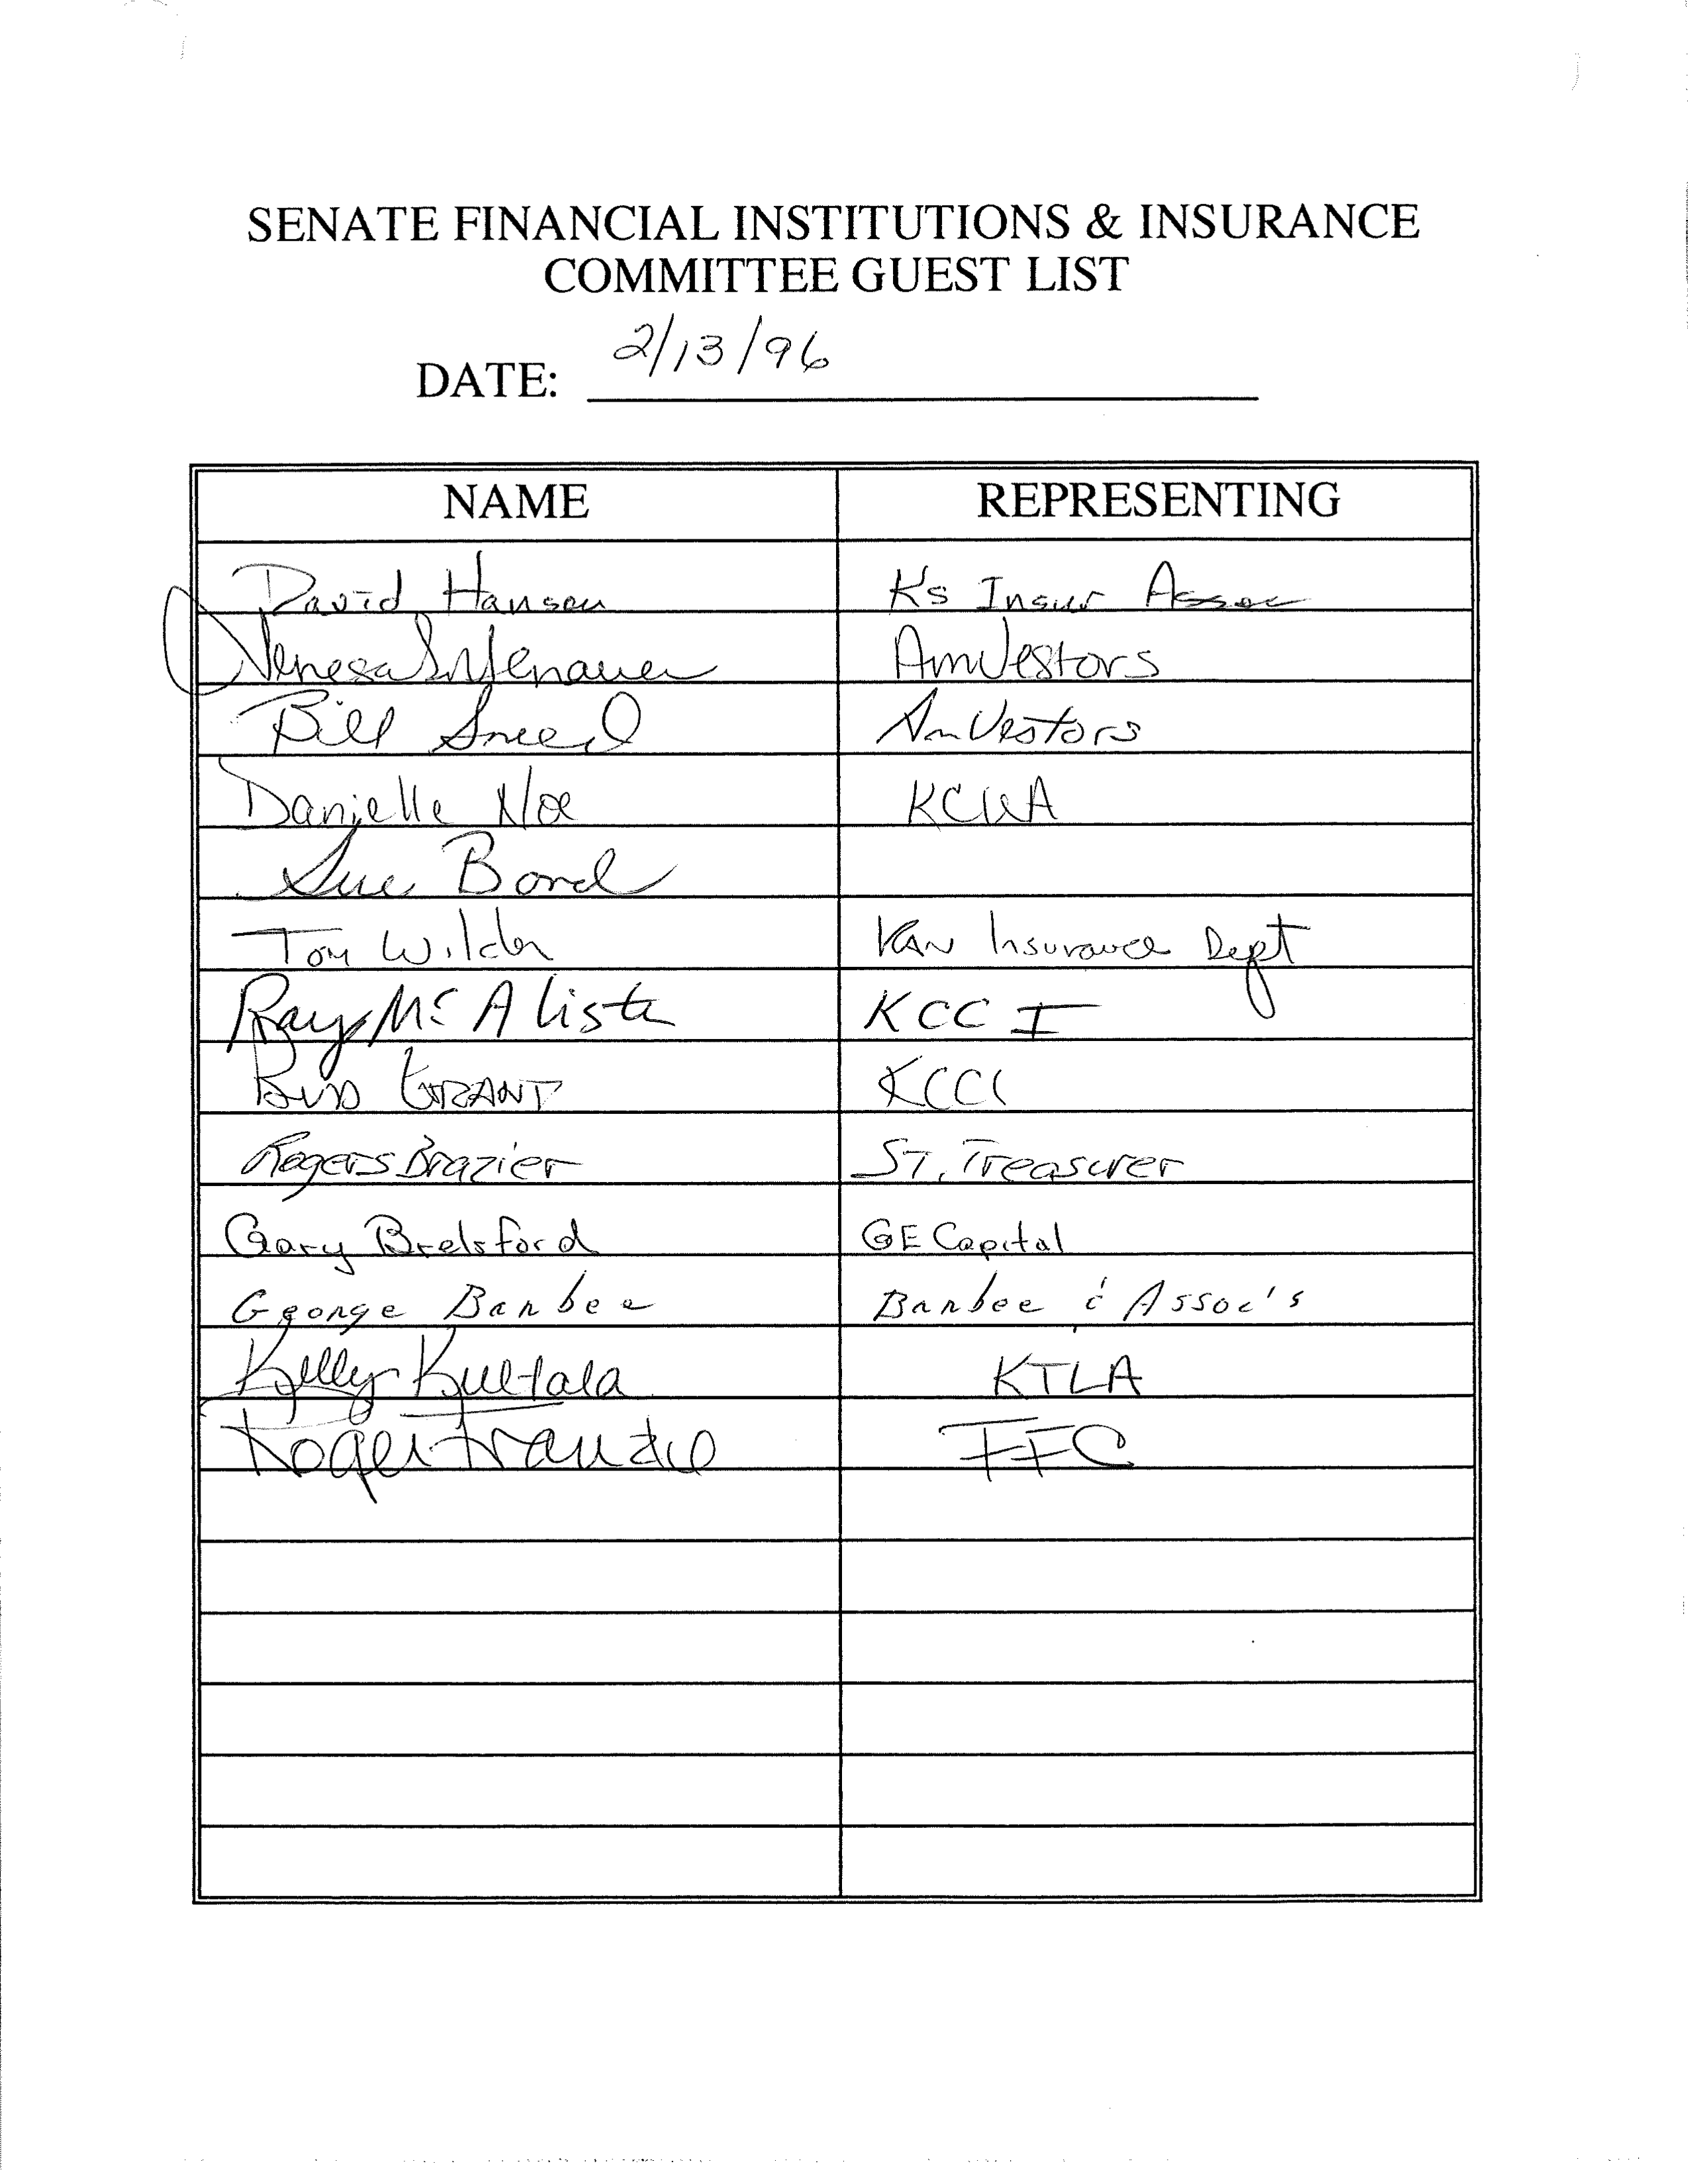 SENATE FINANCIAL INSTITUTIONS & INSURANCE
COMMITTEE GUEST LIST
DATE: 2/13/96
NAME REPRESENTING
David Hansen Ks Insur Assoc
AmVestors
Bill Sneed AmVestors
Danielle Noe
Sue Bond
Tom Wilder Kan Insurance Dept
Ray McAlister KCCI
Bud GRANT KCCI
Rogers Brazier ST. Treasurer
Gary Brelsford GE Capital
George Barbee Barbee & Assoc's
Kelly Kultala KTLA
Roger Franzke FFC